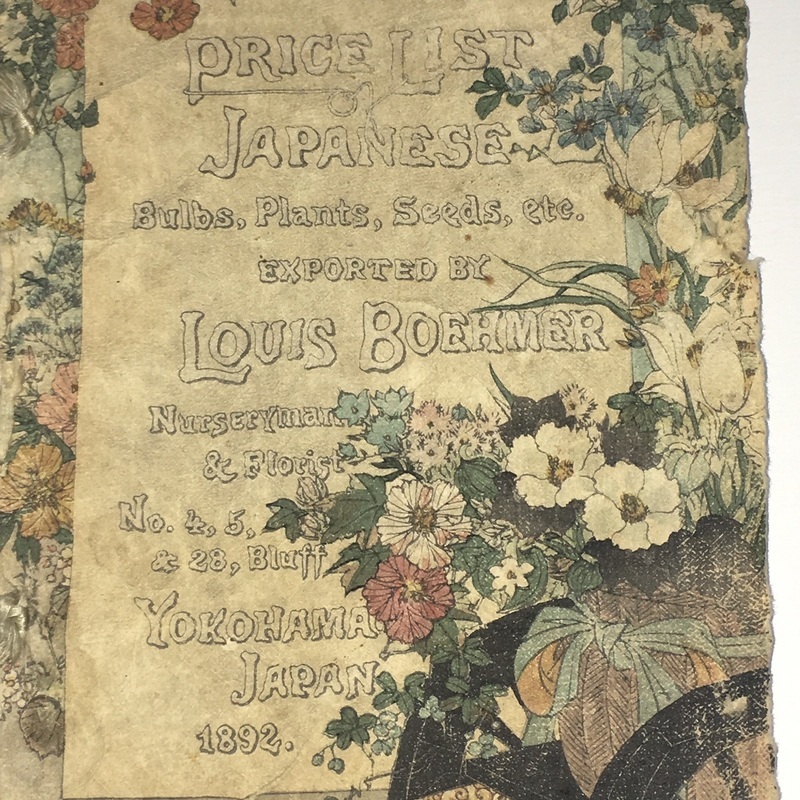 PRICE LIST
of
JAPANESE
Bulbs, Plants, Seeds, etc.
EXPORTED BY
LOUIS BOEHMER
Nurseryman
& Florist
No. 4, 5,
& 28, Bluff
YOKOHAMA
JAPAN
1892.